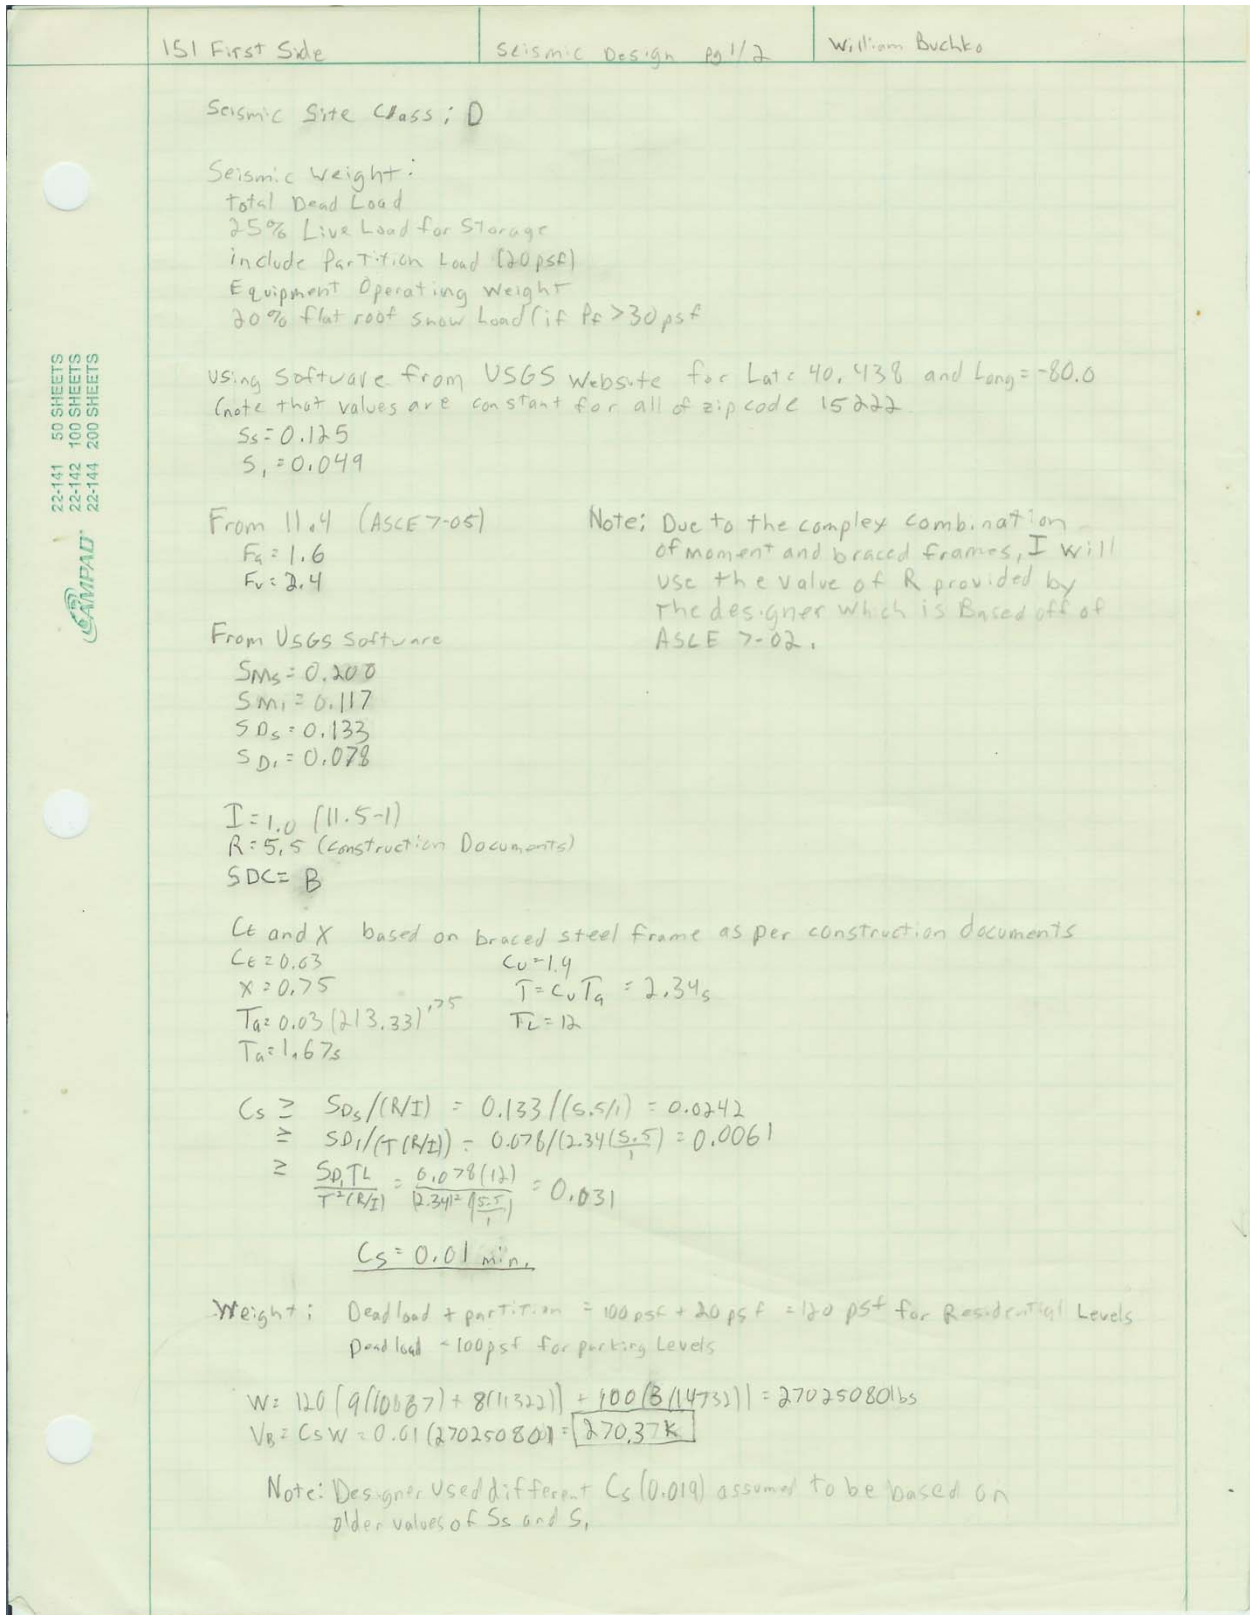 151 First Side
Seismic Design pg 1/2
William Buchko
Seismic Site Class: D
Seismic Weight:
total Dead Load
25% Live Load for Storage
include Partition Load (20psf)
Equipment Operating Weight
20% flat roof snow Load (if Pf > 30psf
Using Software from USGS Website for Lat= 40.438 and Long= -80.0
(note that values are constant for all of zipcode 15222
Ss = 0.125
S1 = 0.049
From 11.4 (ASCE 7-05)
Fa = 1.6
Fv = 2.4
Note: Due to the complex combination
of moment and braced frames, I will
use the value of R provided by
the designer which is Based off of
ASCE 7-02.
From USGS Software
SMs = 0.200
SM1 = 0.117
SDs = 0.133
SD1 = 0.078
I = 1.0 (11.5-1)
R = 5.5 (construction Documents)
SDC = B
Ct and X based on braced steel frame as per construction documents
Ct = 0.03
X = 0.75
Ta = 0.03 (213.33)^.75
Ta = 1.67s
Cu = 1.4
T = CuTa = 2.34s
TL = 12
Cs ≥ SDs/(R/I) = 0.133/(5.5/1) = 0.0242
≥ SD1/(T(R/I)) = 0.078/(2.34(5.5/1) = 0.0061
≥ SD1TL/T²(R/I) = 0.078(12)/(2.34)²(5.5/1) = 0.031
Cs = 0.01 min.
Weight: Dead load + partition = 100psf + 20psf = 120 psf for Residential Levels
Dead load = 100psf for parking Levels
W = 120 [9(10637) + 8(11322)] + 100(3(14732)) = 27025080lbs
VB = CsW = 0.01 (27025080) = 270.37K
Note: Designer used different Cs (0.019) assumed to be based on
older values of Ss and S1
22-141 50 SHEETS
22-142 100 SHEETS
22-144 200 SHEETS
AMPAD